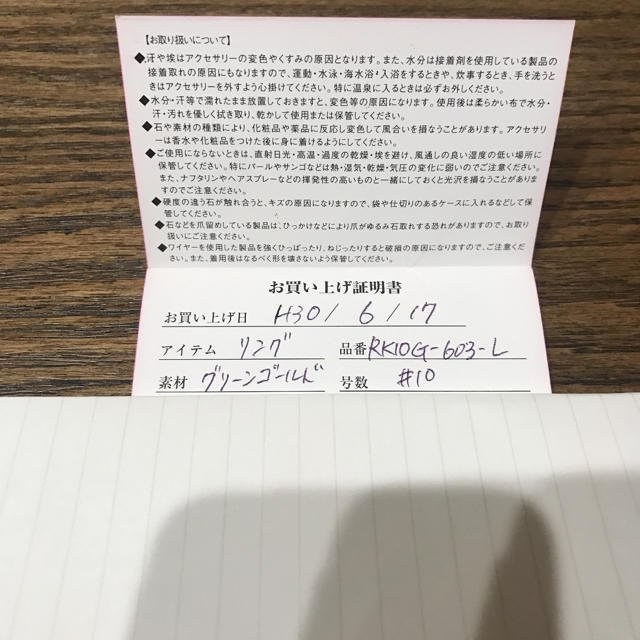 【お取り扱いについて】
◆汗や埃はアクセサリーの変色やくすみの原因となります。また、水分は接着剤を使用している製品の
接着取れの原因にもなりますので、運動・水泳・海水浴・入浴をするときや、炊事するとき、手を洗うと
きはアクセサリーを外すよう心掛けてください。特に温泉に入るときは必ずお外しください。
◆水分・汗等で濡れたまま放置しておきますと、変色等の原因になります。使用後は柔らかい布で水分・
汗・汚れを優しく拭き取り、乾かして使用または保管してください。
◆石や素材の種類により、化粧品や薬品に反応し変色して風合いを損なうことがあります。アクセサリ
ーは香水や化粧品をつけた後に身に着けるようにしてください。
◆ご使用にならないときは、直射日光・高温・過度の乾燥・埃を避け、風通しの良い湿度の低い場所に
保管してください。特にパールやサンゴなどは熱・湿気・乾燥・気圧の変化に弱いのでご注意ください。
また、ナフタリンやヘアスプレーなどの揮発性の高いものと一緒にしておくと光沢を損なうことがありま
すのでご注意ください。
◆硬度の違う石が触れ合うと、キズの原因になりますので、袋や仕切りのあるケースに入れるなどして保
管してください。
◆石などを爪留めしている製品は、ひっかけなどにより爪がゆるみ石取れする恐れがありますので、お取り
扱いにご注意ください。
◆ワイヤーを使用した製品を強くひっぱったり、ねじったりすると破損の原因になりますので、ご注意くだ
さい。また、着用後はなるべく形を壊さないよう保管してください。
お買い上げ証明書
お買い上げ日 H30/6/17
アイテム リング 品番 RK10G-603-L
素材 グリーンゴールド 号数 #10